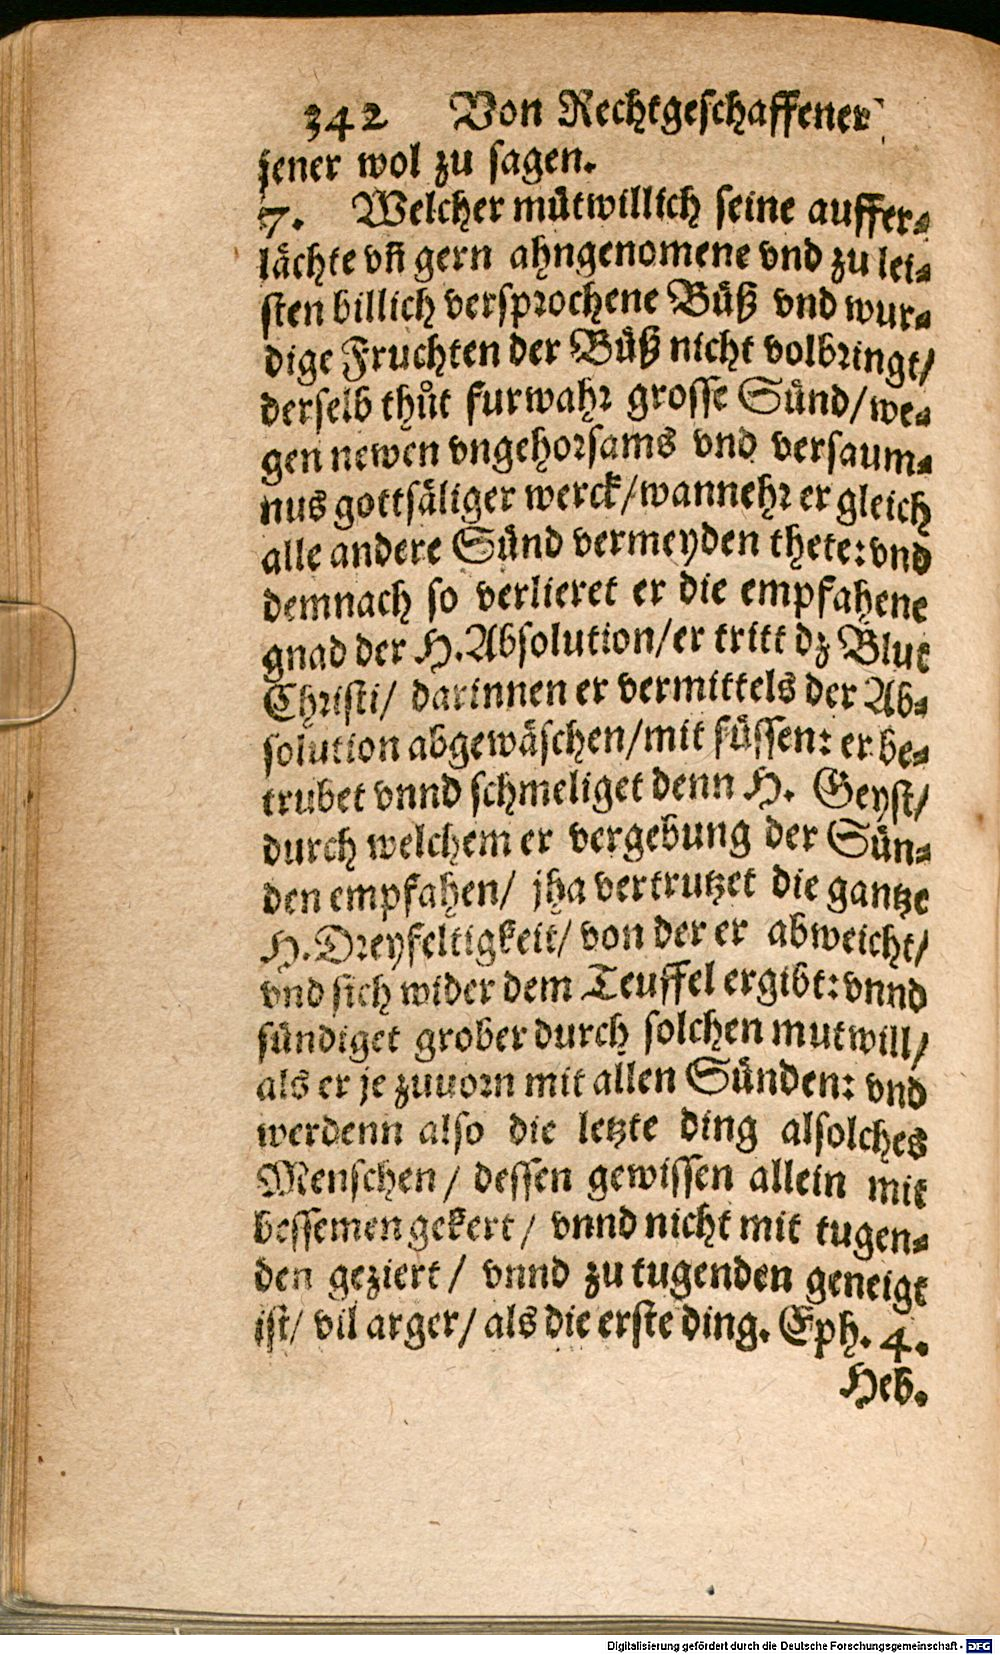 342 Von Rechtgeschaffener
jener wol zu sagen.
7. Welcher mütwillich seine auffer⸗
lächte vñ gern ahngenomene vnd zu lei⸗
sten billich versprochene Büß vnd wur⸗
dige Fruchten der Büß nicht volbringt/
derselb thůt furwahr grosse Sünd/we⸗
gen newen vngehorsams vnd versaum⸗
nus gottsäliger werck/wannehr er gleich
alle andere Sünd vermeyden thete: vnd
demnach so verlieret er die empfahene
gnad der H. Absolution/er tritt dz Blut
Christi/ darinnen er vermittels der Ab⸗
solution abgewäschen/mit füssen: er be⸗
trubet vnnd schmeliget denn H. Geyst/
durch welchem er vergebung der Sün⸗
den empfahen/ jha vertrutzet die gantze
H. Dreyfeltigkeit/ von der er abweicht/
vnd sich wider dem Teuffel ergibt: vnnd
sündiget grober durch solchen mutwill/
als er je zuuorn mit allen Sünden: vnd
werdenn also die letzte ding alsolches
Menschen/ dessen gewissen allein mit
bessemen gekert/ vnnd nicht mit tugen⸗
den geziert/ vnnd zu tugenden geneigt
ist/ vil arger/ als die erste ding. Eph. 4.
Heb.
Digitalisierung gefördert durch die Deutsche Forschungsgemeinschaft - DFG